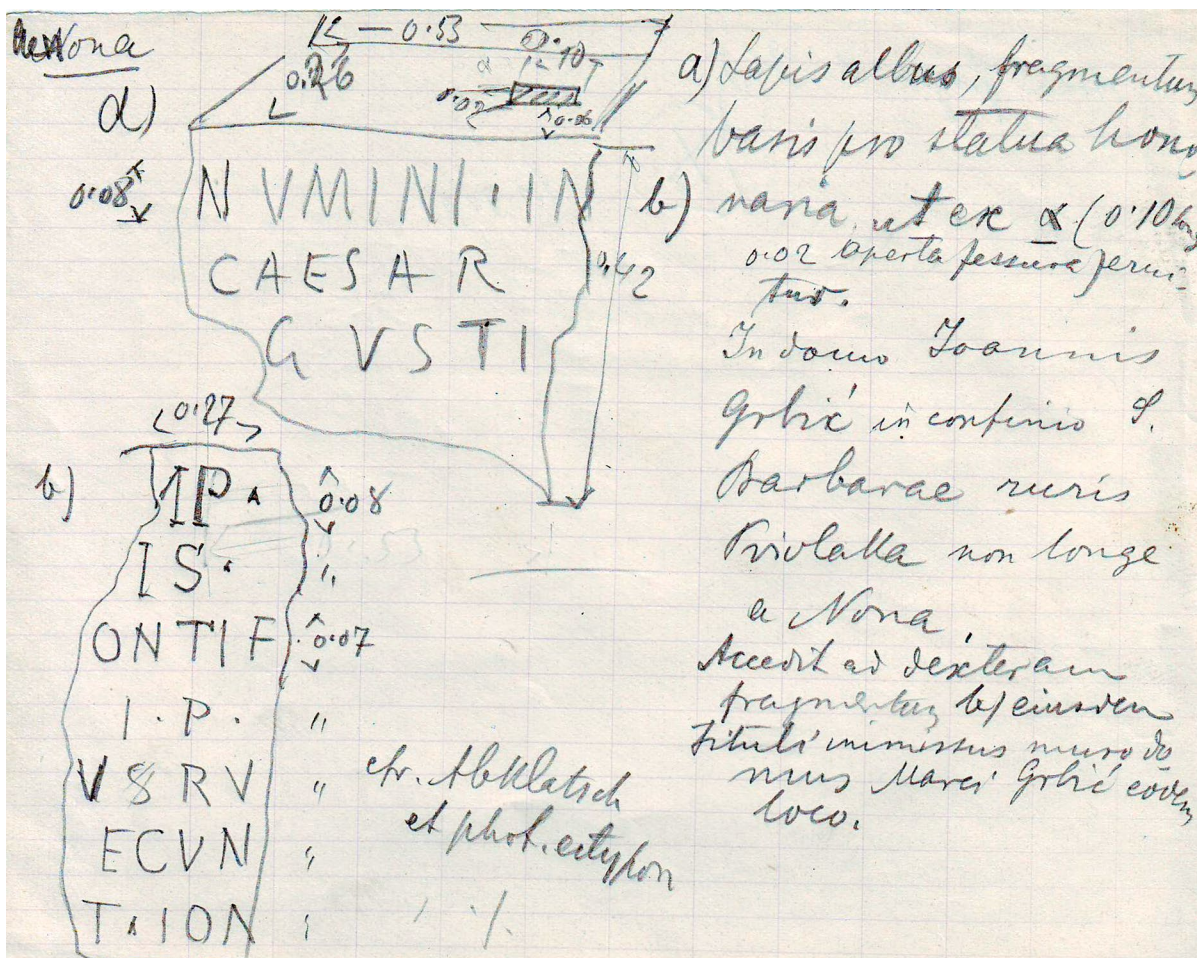 Nona
a)
0.53
0.26
0.10
α
0.02
0.06
0.08
NVMINI · IN
CAESAR
GVSTI
0.42
b)
0.27
IP ·
0.08
IS ·
"
ONTIF
0.07
I · P ·
"
V S RV
"
ECVN
"
T · ION
"
cfr. Abklatsch
et phot. ectypon
a) Lapis albus, fragmentum
basis pro statua hono
b) raria ut ex α (0.10 long
0.02 aperta fessura) erui-
tur.
In domo Joannis
Grbić in confinio S.
Barbarae ruris
non longe
a Nona.
Accedit ad dexteram
fragmentum b) eiusdem
tituli immissus muro do
mus Marci Grbić eodem
loco.